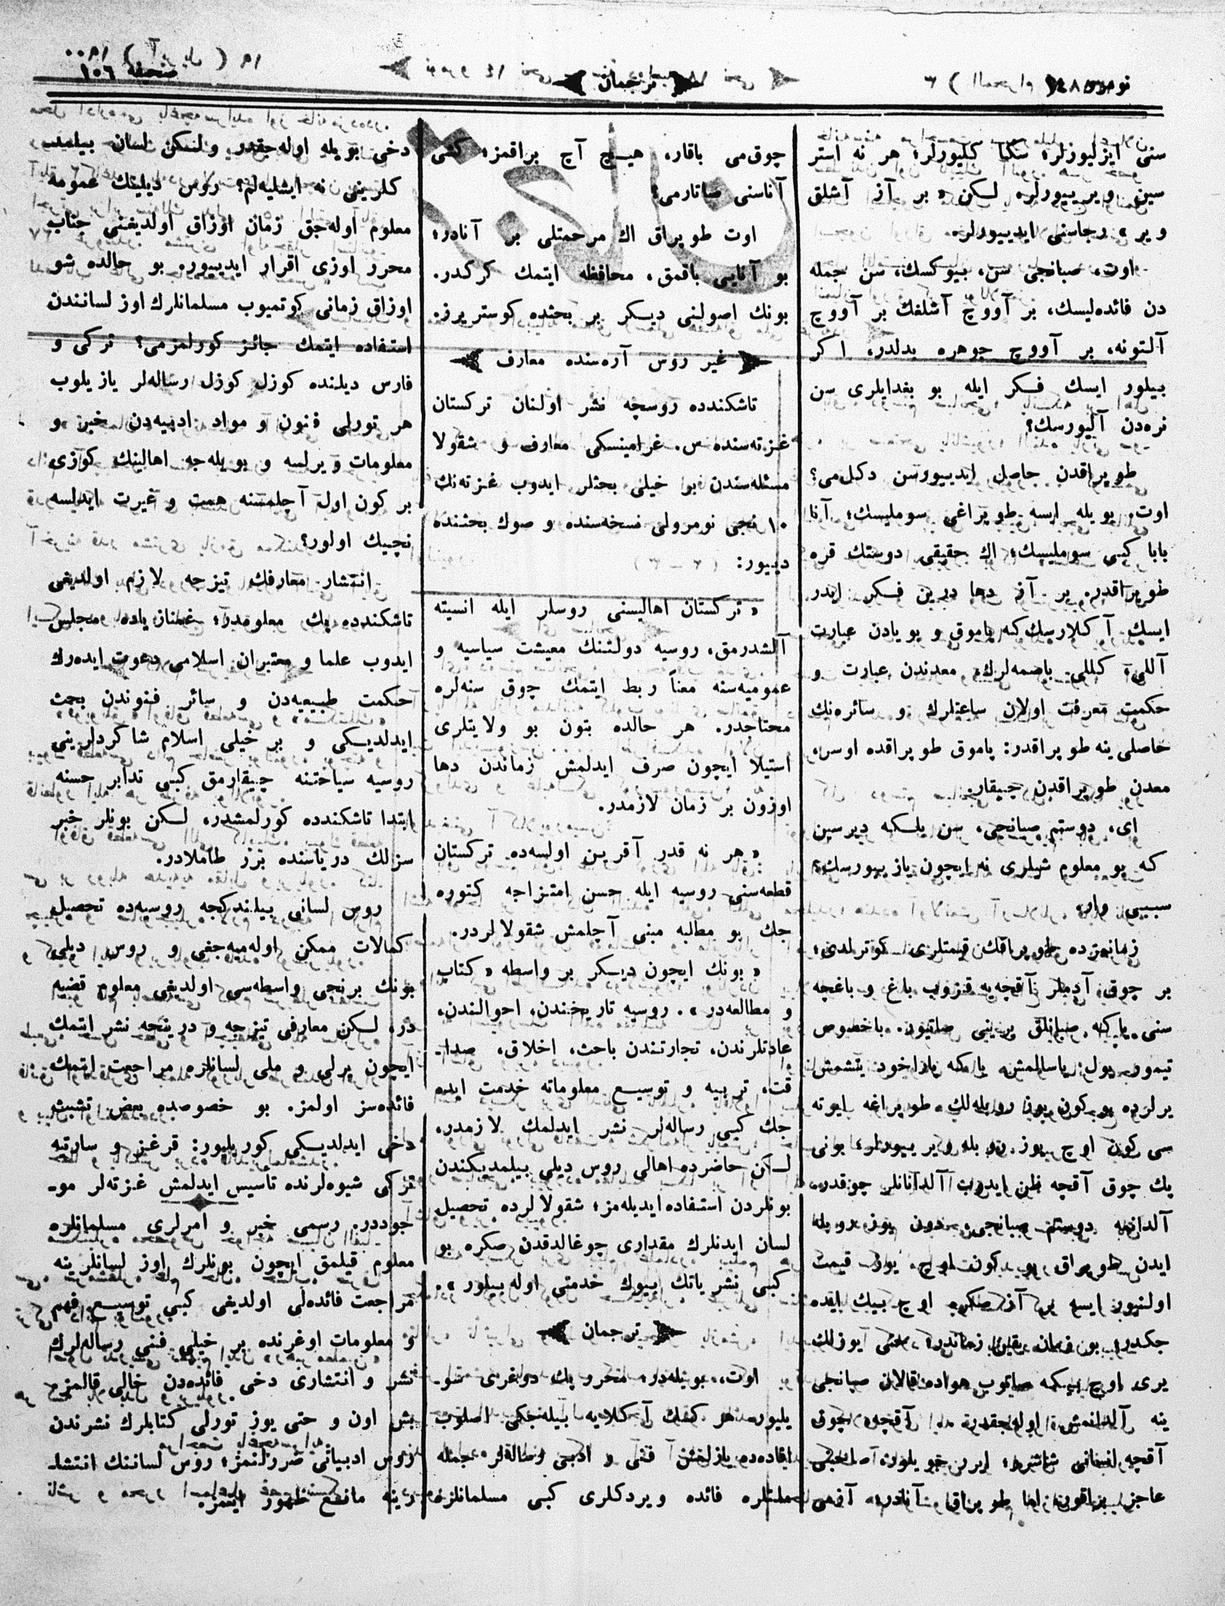 نومرو ٤٨
ترجمان
صحيفه ١٠٦
سنى ايزليورلر؛ سكا كليورلر؛ هر نه استر
سين ويرييورلر. لكن « بر آز آشلق
وير » رجاسنى ايدييورلر.
اوت، صبانجى سن، بيوكسك، سن جمله
دن فائده‌ليسك، بر آووچ آشلغك بر آووچ
آلتونه، بر آووچ جوهره بدلدر. اكر
بيلور ايسك فكر ايله بو بغدايلرى سن
نره‌دن آليورسك؟
طوپراقدن حاصل ايدييورسن دكلمى؟
اوت. بويله ايسه طوپراغى سومليسك؛ آنا
بابا كبى سومليسك؛ اك حقيقى دوستك قره
طوپراقدر. بر آز دها درين فكر ايدر
ايسك آكلارسك كه پاموق و بويادن عبارت
آللى، كللى باصمه‌لرك، معدندن عبارت و
حكمت معرفت اولان ساعتلرك و سائره‌نك
خاصلى ينه طوپراقدر: پاموق طوپراقده اوسر،
معدن طوپراقدن چيقار.
اى، دوستم صبانجى، سن بلكه ديرسين
كه بو معلوم شيلرى نه ايچون يازيورسك؟
سببى وار.
زمانمزده طوپراقك قيمتلرى كوترلدى؛
بر چوق آدملر آقچه‌يه قزوب باغ و باغچه
سنى، ياكه صبانلق يرينى صاتيور. باخصوص
تيمور يول ياسالمش ياكه
يرلرده بو كون يوز روبله‌لك طوپراغه ايوته
سى كون اوچ يوز روبله ويرييورلر؛ بونى
پك چوق آقچه ظن ايدوب آلدانانلر چوقدر.
آلدانمه دوستم صبانجى،
ايدن طوپراق بو كون اوچ يوز قيمت
اولنيور ايسه بر آز صكره اوچ بيك ايده
جكدر؛ بو زمان يقين زماندر؛
يرى اوچ بيكه صاتوب هواده قالان صبانجى
ينه آلدانمش اوله‌جقدر؛ آقچه چوق
آقچه انسانى شاشرد؛
عاجز براقور. اما طوپراق آنادر،
چوقمى باقار، هيچ آچ براقمز؛ كشى
آناسنى صاتارمى؟
اوت طوپراق اك مرحمتلى بر آنادر؛
بو آنايى باقمق، محافظه ايتمك كركدر.
بونك اصولنى ديكر بر بحثده كوستريرز.
غير روس آره‌سنده معارف
تاشكندده روسچه نشر اولنان تركستان
غزته‌سنده س. غرامينسكى معارف و شقولا
مسئله‌سندن بو خيلى بحثلر ايدوب غزته‌نك
١٠ نجى نومرولى نسخه‌سنده و صوك بحثنده
دييور:
« تركستان اهاليسنى روسلر ايله انسيته
آلشدرمق، روسيه دولتنك معيشت سياسيه و
عموميه‌سنه معناً ربط ايتمك چوق سنه‌لره
محتاجدر. هر حالده بتون بو ولايتلرى
استيلا ايچون صرف ايدلمش زماندن دها
اوزون بر زمان لازمدر.
« هر نه قدر آقرين اولسه‌ده تركستان
قطعه‌سنى روسيه ايله حسن امتزاجه كتوره
جك بو مطالبه مبنى آچلمش شقولالردر.
« بونك ايچون ديكر بر واسطه « كتاب
و مطالعه‌در ». روسيه تاريخندن، احوالندن،
عادتلرندن، تجارتندن باحث، اخلاق، صدا-
قت، تربيه و توسيع معلوماته خدمت ايده
جك كبى رساله‌لر نشر ايدلمك لازمدر.
لكن حاضرده اهالى روس ديلى بيلمديكندن
بونلردن استفاده ايديله‌مز؛ شقولالرده تحصيل
لسان ايدنلرك مقدارى چوغالدقدن صكره بو
كبى نشرياتك بيوك خدمتى اوله‌بيلور ».
ترجمان
اوت، بويله‌در، محرر پك دوغرى سو-
يليور. هر كيمك آكلايه بيله‌جكى اصلوب
افاده‌ده يازلمش فنى و ادبى رساله‌لر جمله
ملتلره فائده ويردكلرى كبى مسلمانلره
دخى بويله اوله‌جقدر ولكن لسان بيلمد-
كلرينى نه ايشليه‌لم؟ روس ديلينك عمومه
معلوم اوله‌جق زمان اوزاق اولديغنى جناب
محرر اوزى اقرار ايدييور. بو حالده شو
اوزاق زمانى كوتميوب مسلمانلرك اوز لسانندن
استفاده ايتمك جائز كورلمزمى؟ تركى و
فارس ديلنده كوزل كوزل رساله‌لر يازيلوب
هر تورلى فنون و مواد ادبيه‌دن خبر و
معلومات ويرلسه و بويله‌جه اهالينك كوزى
بر كون اول آچلمسنه همت و غيرت ايدلسه
نچيك اولور؟
انتشار معارفك تيزجه لازم اولديغى
تاشكندده پك معلومدر؛ غمنازياده مجلس
ايدوب علما و معتبران اسلامى دعوت ايده‌رك
حكمت طبيعيه‌دن و سائر فنوندن بحث
ايدلديكى و بر خيلى اسلام شاكردلرينى
روسيه سياحتنه چيقارمق كبى تدابر حسنه
ابتدا تاشكندده كورلمشدر، لكن بونلر خبر
سزلك درياسنده بزر طاملادر.
روس لسانى بيلندكجه روسيه‌ده تحصيل
كمالات ممكن اوله‌ميه‌جغى و روس ديلى
بونك برنجى واسطه‌سى اولديغى معلوم قضيه
در، لكن معارفى تيزجه و درينجه نشر ايتمك
ايچون يرلى و ملى لسانلره مراجعت ايتمك
فائده‌سز اولمز. بو خصوصده بعض تشبث
دخى ايدلديكى كوريليور: قرغز و سارتيه
تركى شيوه‌لرنده تأسيس ايدلمش غزته‌لر مو-
جوددر. رسمى خبر و امرلرى مسلمانلره
معلوم قيلمق ايچون بونلرك اوز لسانلرينه
مراجعت فائده‌لى اولديغى كبى توسيع فهم
و معلومات اوغرنده بر خيلى فنى رساله‌لرك
نشر و انتشارى دخى فائده‌دن خالى قالمز.
بش اون و حتى يوز تورلى كتابلرك نشرندن
روس ادبياتى ضررلنمز؛ روس لساننك انتشا-
رينه مانع ظهور ايتمز.